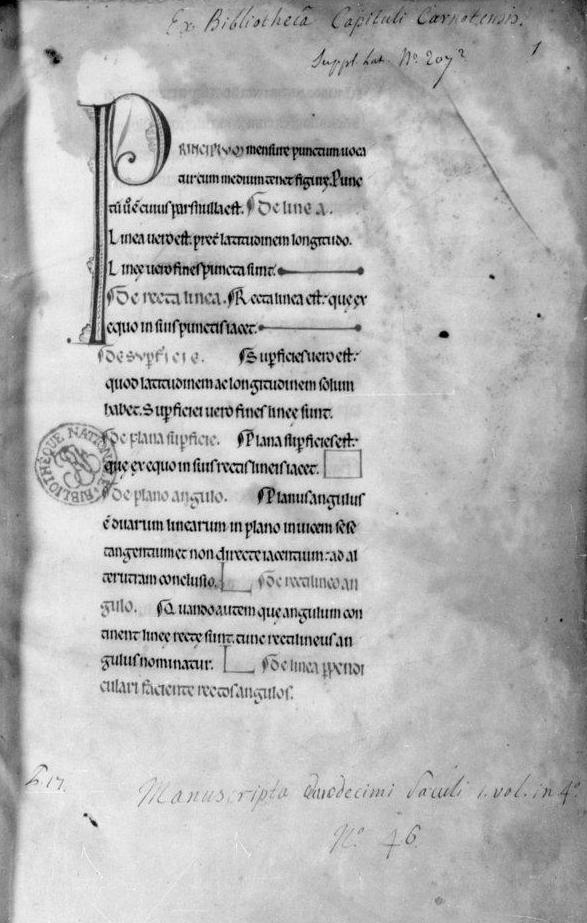 Ex Bibliothecâ Capituli Carnotensis.
Suppl. Lat. Nº. 207²
1
PRINCIPIUM mensurę punctum uoca
tur cum medium tenet figurę. Punc
tū ū ē cuius pars nulla est. De linea.
Linea uero est. pręt latitudinem longitudo.
Lineę uero fines puncta sunt.
De recta linea. Recta linea est. que ex
equo in suis punctis iacet.
De supficie. Supficies uero est.
quod latitudinem ac longitudinem solum
habet. Supficiei uero fines lineę sunt.
De plana supficie. Plana supficies est.
que ex equo in suis rectis lineis iacet.
De plano angulo. Planus angulus
ē duarum linearum in plano inuicem sese
tangentium et non directe iacentium. ad al
terutram conclusio. De rectilineo an
gulo. Quando autem que angulum con
tinent lineę rectę sunt. tunc rectilineus an
gulus nominatur. De linea ppendi
culari faciente rectos angulos.
BIBLIOTHÈQUE NATIONALE
Manuscripta duodecimi Saeculi 1. vol. in 4º
Nº. 46